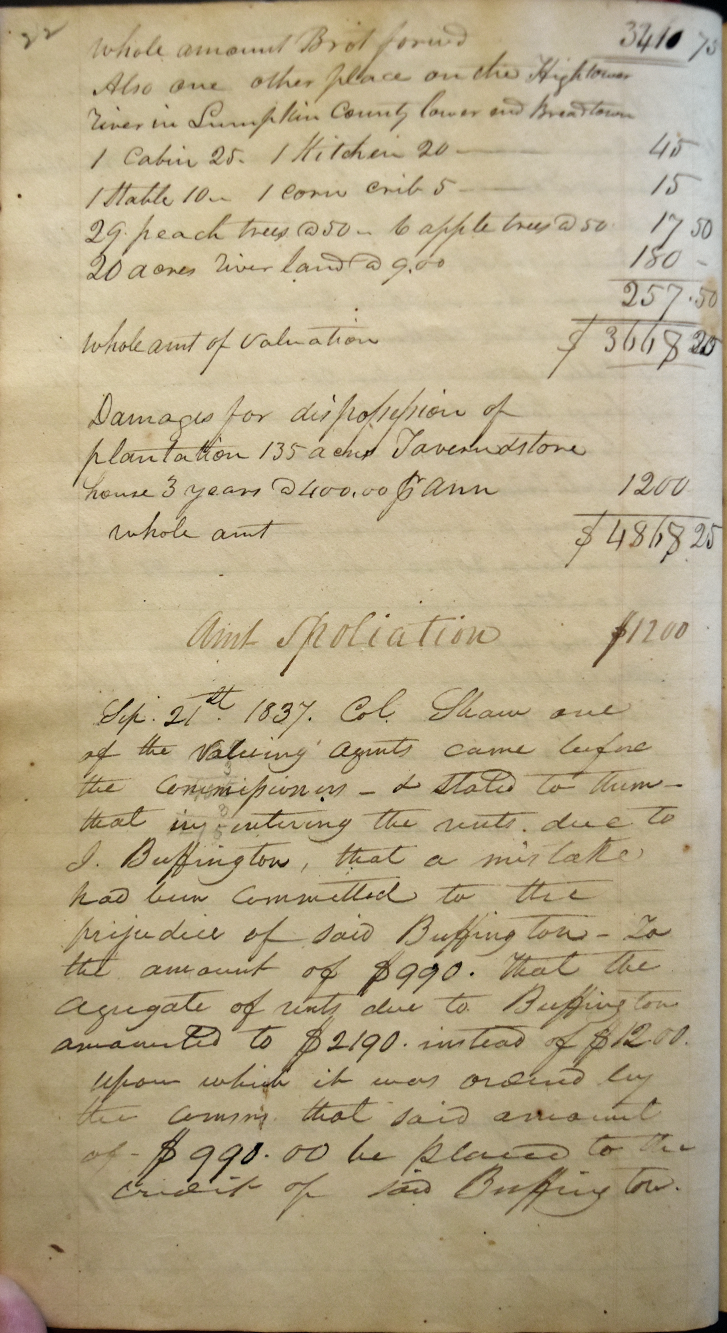 22
Whole amount Brot forwd 3410 75
Also one other place on the Hightower
River in Lumpkin County lower end Breadtown
1 Cabin 25. 1 Kitchen 20 — 45
1 Stable 10 - 1 corn crib 5 — 15
29 peach trees @ 50 - 6 apple trees @ 50 17 50
20 acres river land @ 9.00 180 -
257.50
Whole amt of Valuation $ 3668 25
Damages for dispossession of
plantation 135 acres Tavern & store
house 3 years @ 400.00 pr Ann 1200
whole amt $ 4868 25
Amt Spoliation $1200
Sep. 21st. 1837. Col. Shaw one
of the Valueing Agents came before
the Commissioners - & Stated to them -
that in entering the rents due to
J. Buffington, that a mistake
had been committed to the
prejudice of said Buffington - To
the amount of $990. That the
Agregate of rents due to Buffington
amounted to $2190. instead of $1200.
Upon which it was ordered by
the Comms. that said amount
of - $990.00 be placed to the
credit of said Buffington.